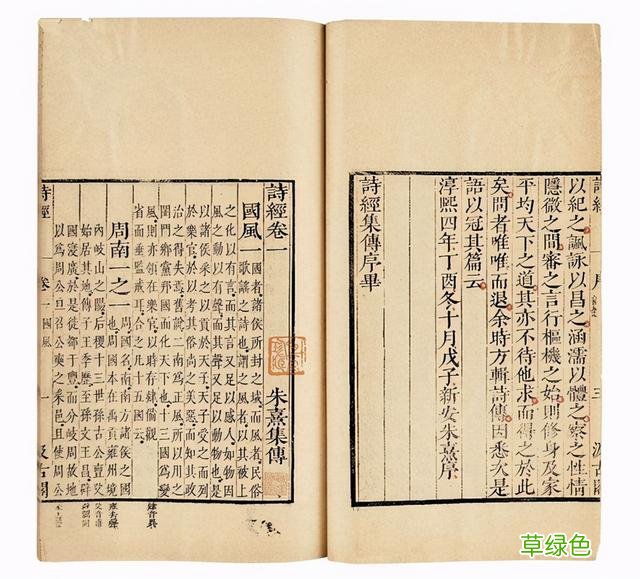 詩經 序 三 汲古閣
以紀之諷詠以昌之涵濡以體之察之性情
隱微之間審之言行樞機之始則修身及家
平均天下之道其亦不待他求而得之於此
矣問者唯唯而退余時方輯詩傳因悉次是
語以冠其篇云
淳熙四年丁酉冬十月戊子新安朱熹序
詩經集傳序畢
詩經卷一 朱熹集傳
國風一
國者諸侯所封之域而風者民俗
歌謠之詩也謂之風者以其被上
之化以有言而其言又足以感人如物因
風之動以有聲而其聲又足以動物也是
以諸侯采之以貢於天子天子受之而列
於樂官於以考其俗尚之美惡而知其政
治之得失焉舊說二南為正風所以用之
閨門鄉黨邦國而化天下也十三國為變
風則亦領在樂官以時存肄備觀
省而垂監戒耳合之凡十五國云
周南一之一
周國名南南方諸侯
之國也周國本在禹貢雍州境
內岐山之陽后稷十三世孫古公亶父
始居其地傳子王季歷至孫文王昌辟
國寖廣於是徙都于豐而分岐周故地
以為周公旦召公奭之采邑且使周公
詩經 卷一 國風 一 汲古閣
草绿色